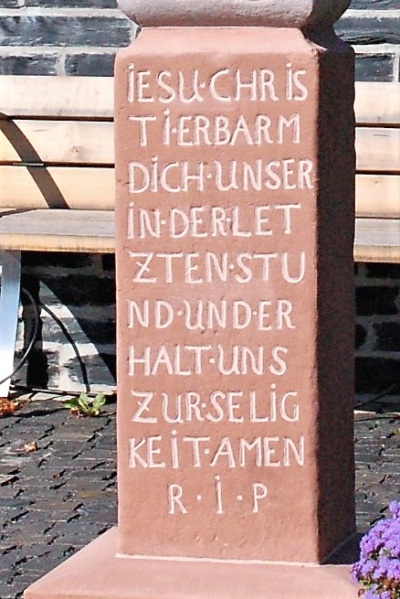 IESU·CHRIS
TI·ERBARM
DICH·UNSER
IN·DER·LET
ZTEN·STU
ND·UND·ER
HALT·UNS
ZUR·SELIG
KEIT·AMEN
R·I·P